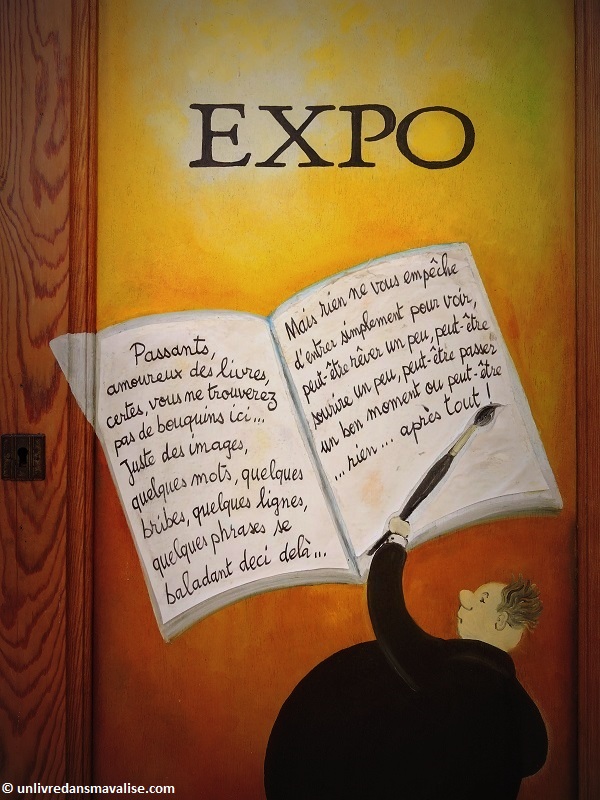 EXPO
Passants,
amoureux des livres,
certes, vous ne trouverez
pas de bouquins ici...
Juste des images,
quelques mots, quelques
bribes, quelques lignes,
quelques phrases se
baladant deci delà...
Mais rien ne vous empêche
d'entrer simplement pour voir,
peut-être rêver un peu, peut-être
sourire un peu, peut-être passer
un bon moment ou peut-être
...rien... après tout !
© unlivredansmavalise.com